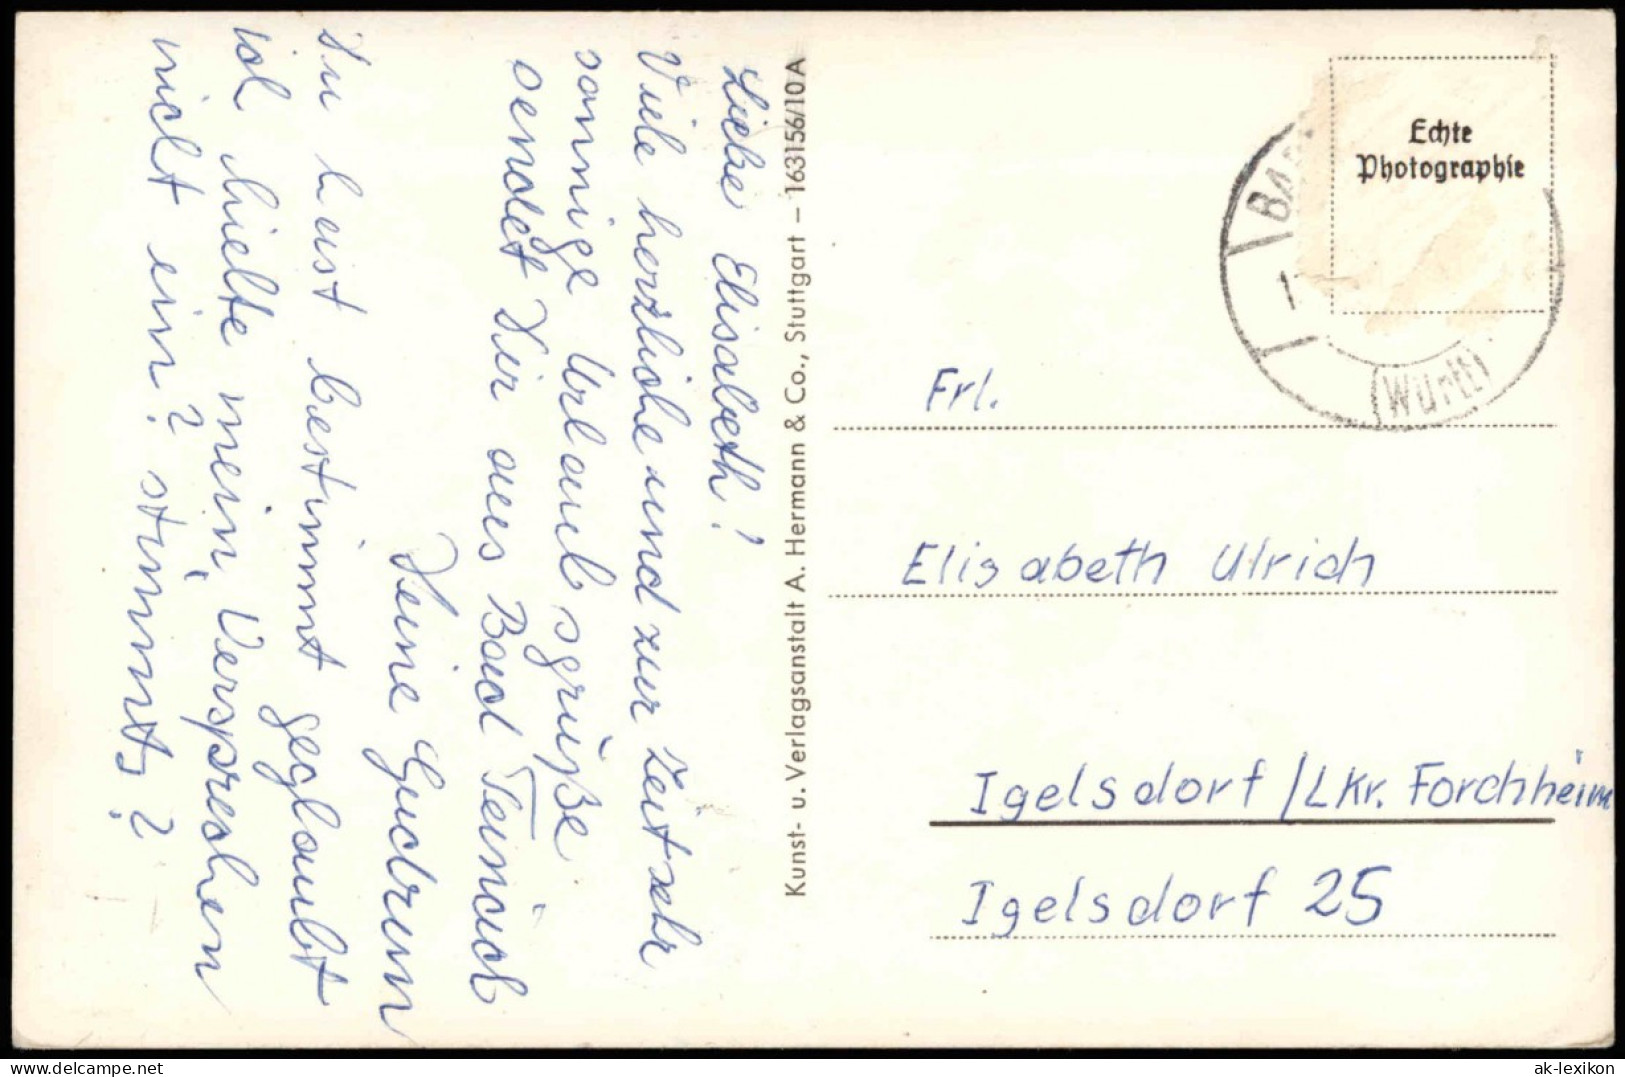 Liebe Elisabeth!
Viele herzliche und zur Zeit sehr
sonnige Urlaubsgrüße
sendet Dir aus Bad Teinach
Deine Gudrun
Du hast bestimmt geglaubt
ich hielte mein Versprechen
nicht ein? stimmts?
Kunst- u. Verlagsanstalt A. Hermann & Co., Stuttgart – 163156/10A
Echte
Photographie
(Württ)
Frl.
Elisabeth Ulrich
Igelsdorf / Lkr. Forchheim
Igelsdorf 25
delcampe.net
ak-lexikon